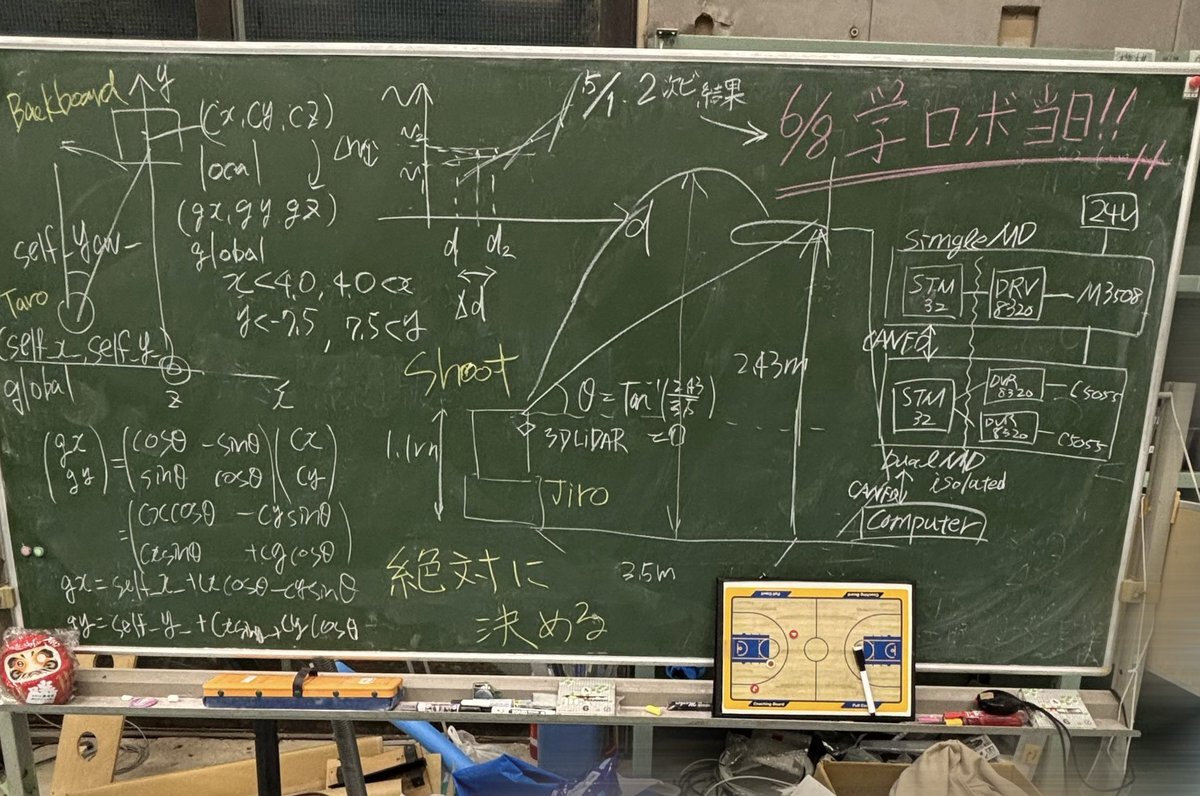 Backboard
y
(cx, cy, cz)
local
(gx, gy, gz)
global
x<4.0, 4.0<x
y<-7.5, 7.5<y
self_yaw_
Taro
(self_x_, self_y_
global
z
x
(gx gy) = (cosθ -sinθ sinθ cosθ)(cx cy)
= (cxcosθ -cysinθ cxsinθ +cycosθ)
gx=self_x_+cxcosθ-cysinθ
gy=self_y_+cxsinθ+cycosθ
d
d d₂
Δd
5/1. 2次ビ結果
6/8 学ロボ当日!!
Shoot
θ=Tan⁻¹(2.43/3.5)
3DLiDAR
1.1m
Jiro
2.43m
3.5m
絶対に
決める
24V
Single MD
STM
32
DRV
8320
M3508
CANFD
STM
32
DVR
8320
C5055
DVR
8320
C5055
Dual MD
isolated
CANFD
Computer
Full Court
Coaching Board
Coaching Board
Full Court